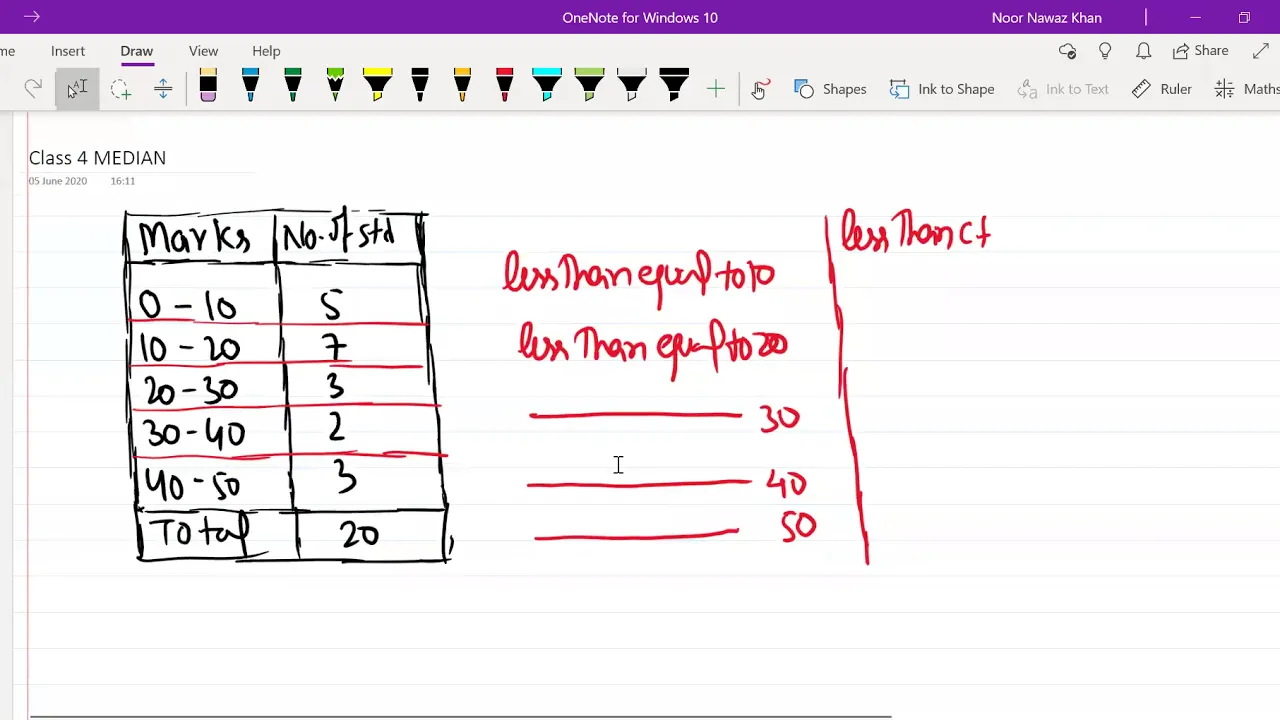 OneNote for Windows 10
Noor Nawaz Khan
me Insert Draw View Help
Share
Shapes Ink to Shape Ink to Text Ruler Maths
Class 4 MEDIAN
05 June 2020 16:11
Marks No. of std
0 - 10 5
10 - 20 7
20 - 30 3
30 - 40 2
40 - 50 3
Total 20
less Than equal to 10
less Than equal to 20
30
40
50
less Than cf